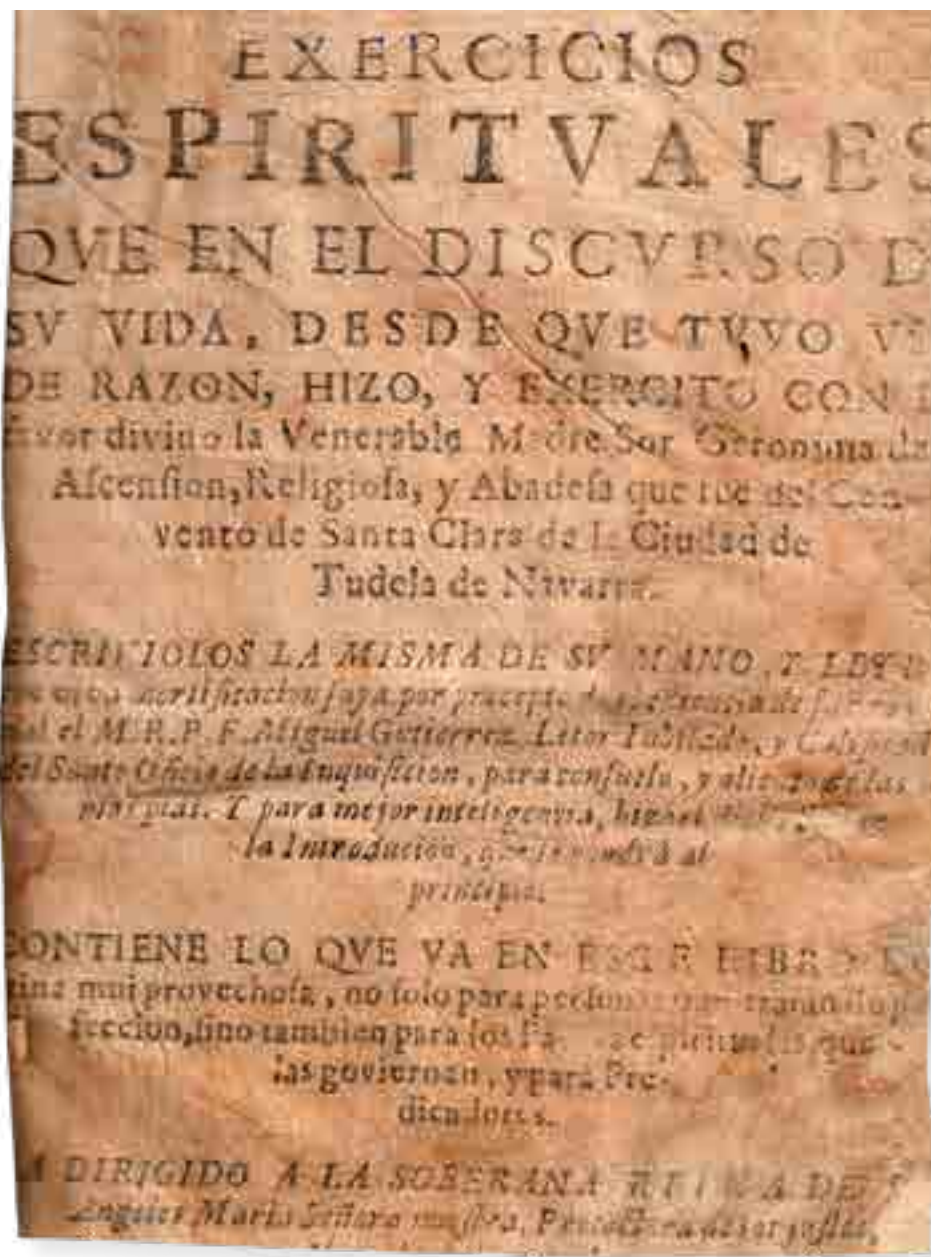 EXERCICIOS
ESPIRITVALES
QVE EN EL DISCVRSO D
SV VIDA, DESDE QVE TVVO V
DE RAZON, HIZO, Y EXERCITO CON
divino la Venerable Madre Sor Geronima de
Aſcenſion, Religioſa, y Abadeſa que fue del Con-
vento de Santa Clara de la Ciudad de
Tudela de Navarra.
LA MISMA DE SV MANO, Y
mortificacion ſuya por precepto
el M. R. P. F. Miguel Gutierrez, Letor Iubilado, y
del Santo Oficio de la Inquiſicion, para conſuelo, y
pias. Y para mejor inteligencia,
la Introducion, al
principio.
CONTIENE LO QVE VA EN ESTE LIBRO
mui provechoſa, no ſolo para
feccion, ſino tambien para los que
las goviernan, y para Pre-
dicadores.
DIRIGIDO A LA SOBERANA REINA DE
Angeles Maria Señora nueſtra, Protectora de los